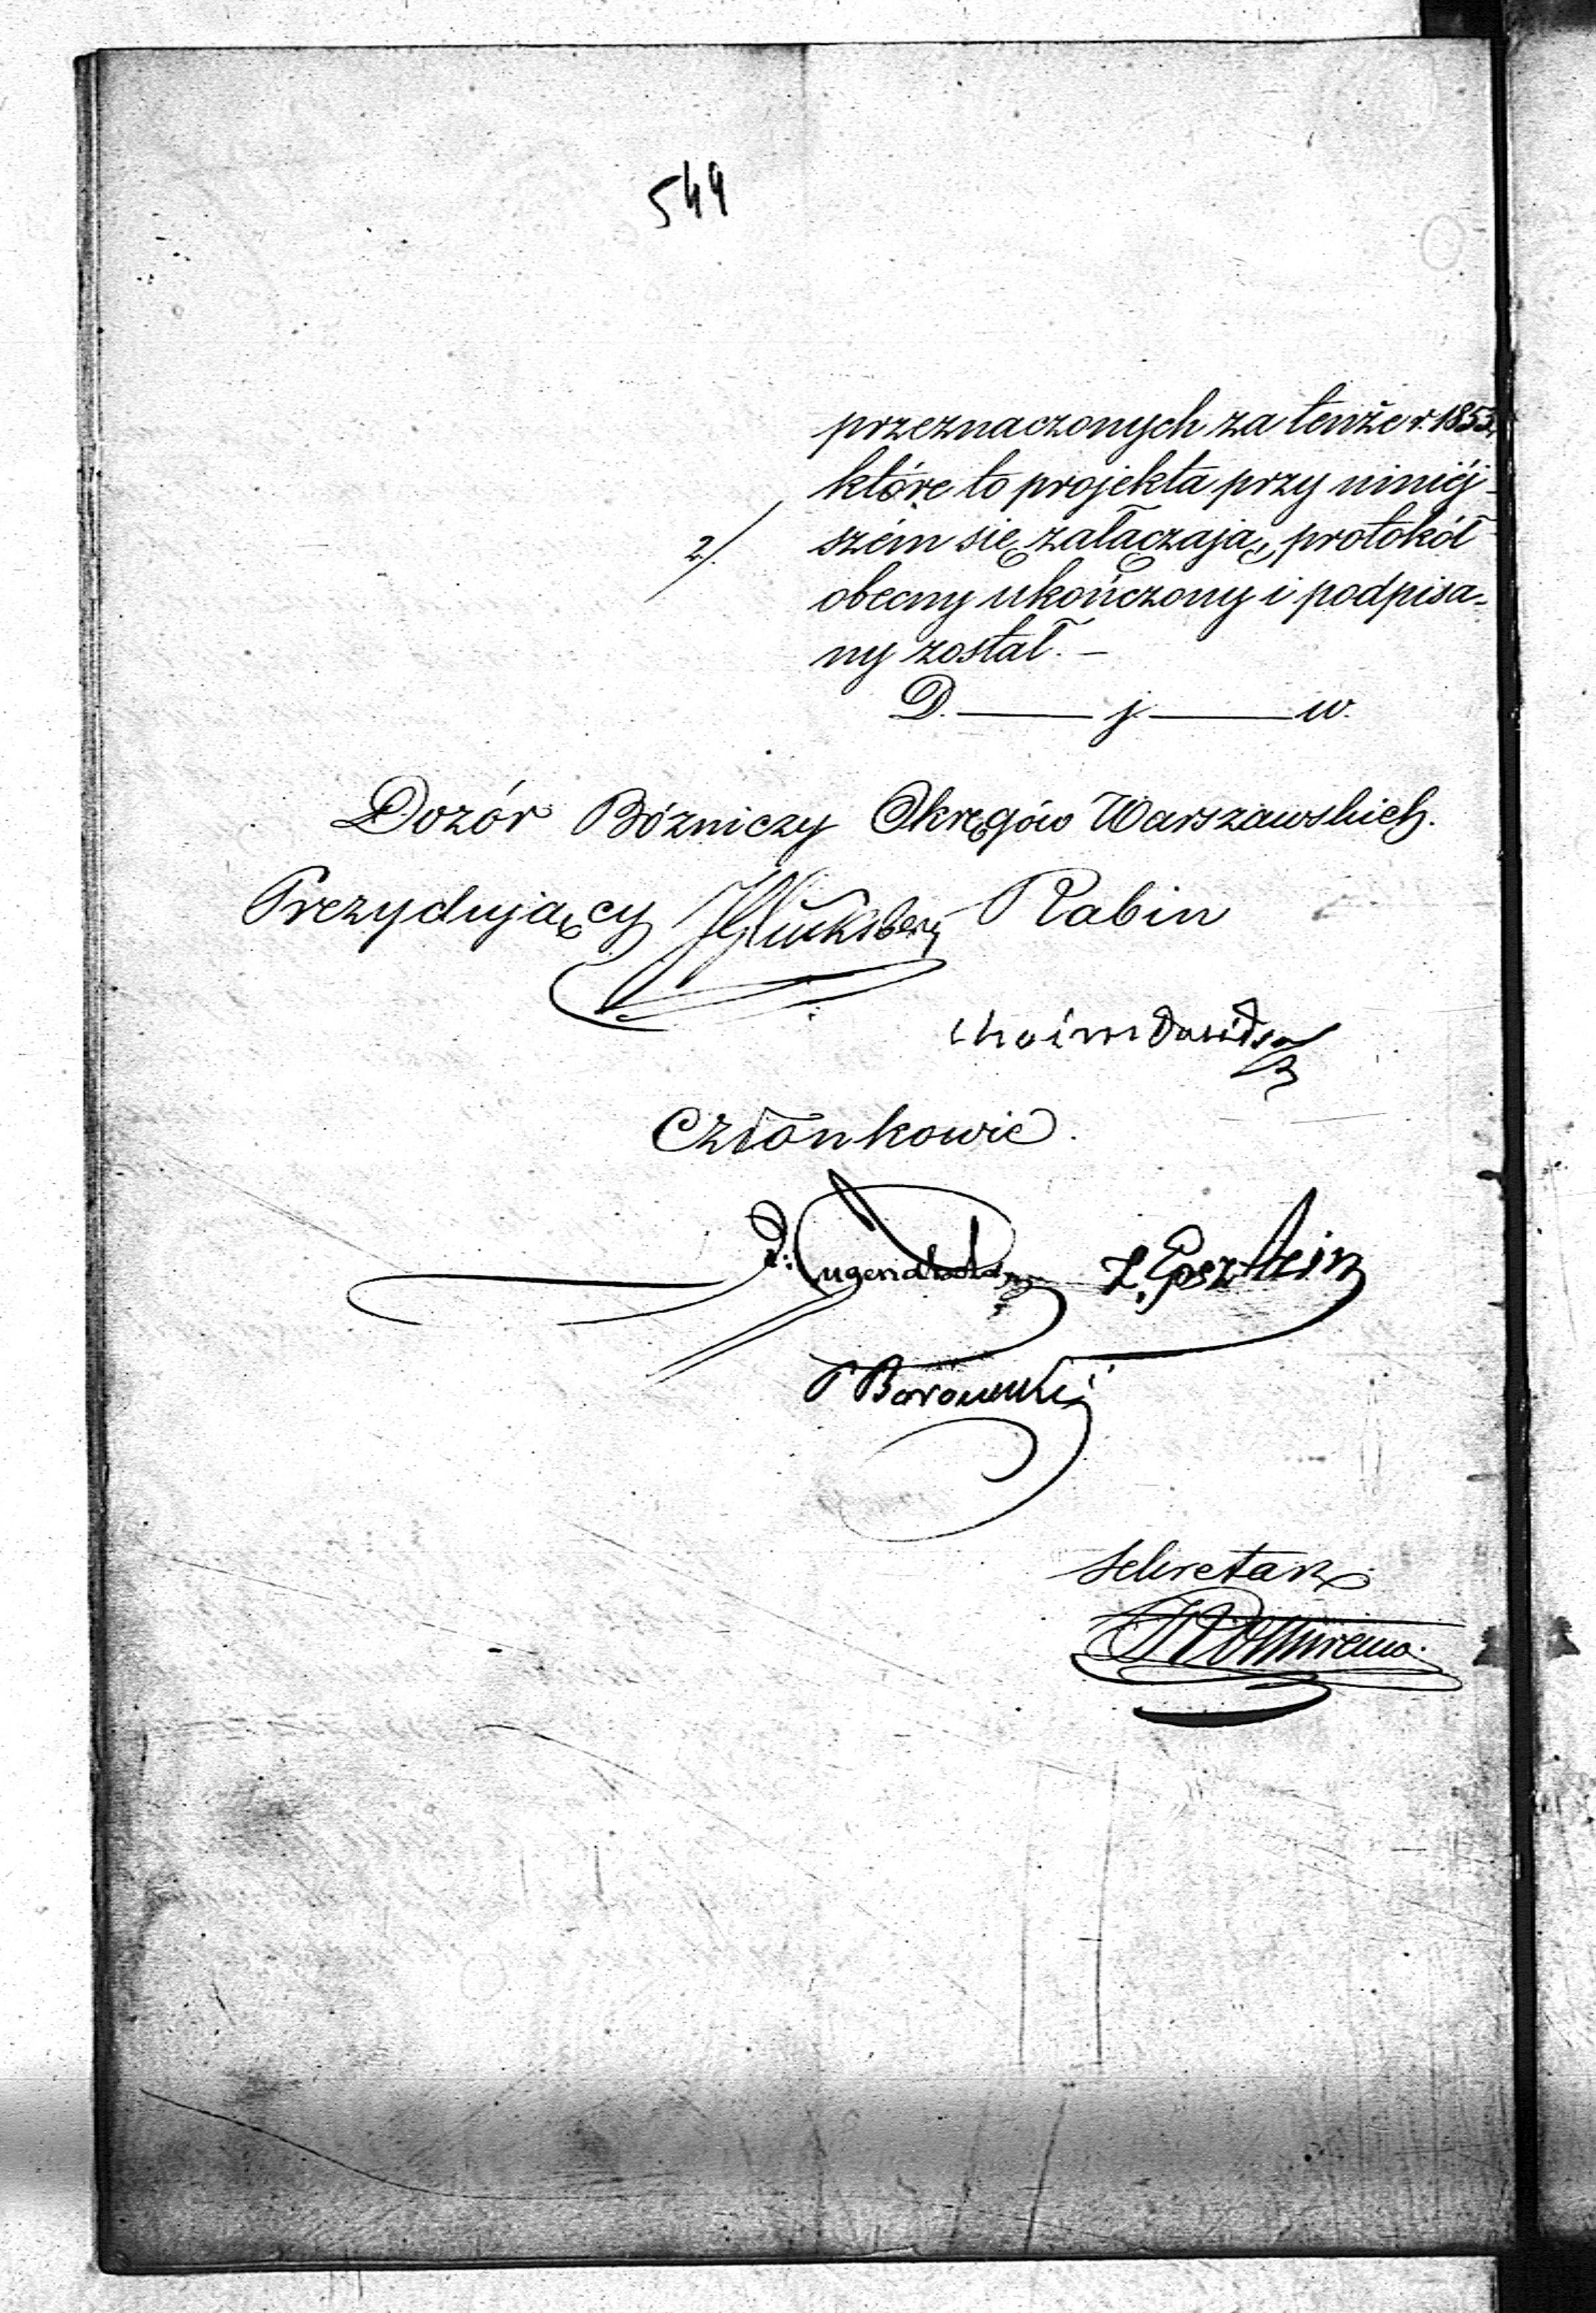 549
przeznaczonych za tenże r. 1853,
które to projekta przy niniéj-
2/. szém się załączają, protokół
obecny ukończony i podpisa-
ny został. —
D. — j. — w.
Dozór Bóżniczy Okręgów Warszawskich.
Prezydujący JGlucksberg Rabin
Chaim Dawidso
Członkowie.
Epsztein
Borowski
Sekretarz